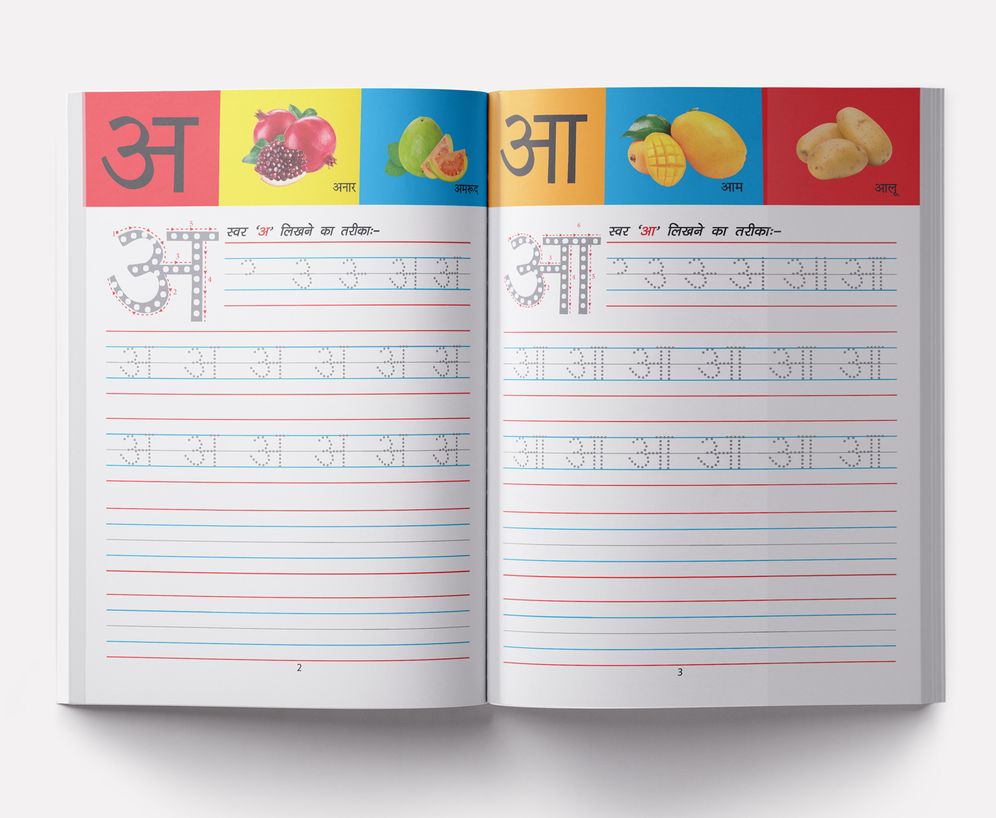 अ
अनार
अमरूद
अ
स्वर 'अ' लिखने का तरीकाः–
अ अ
अ अ अ अ अ अ
अ अ अ अ अ अ
2
आ
आम
आलू
आ
स्वर 'आ' लिखने का तरीकाः–
अ आ आ
आ आ आ आ आ आ
आ आ आ आ आ आ
3